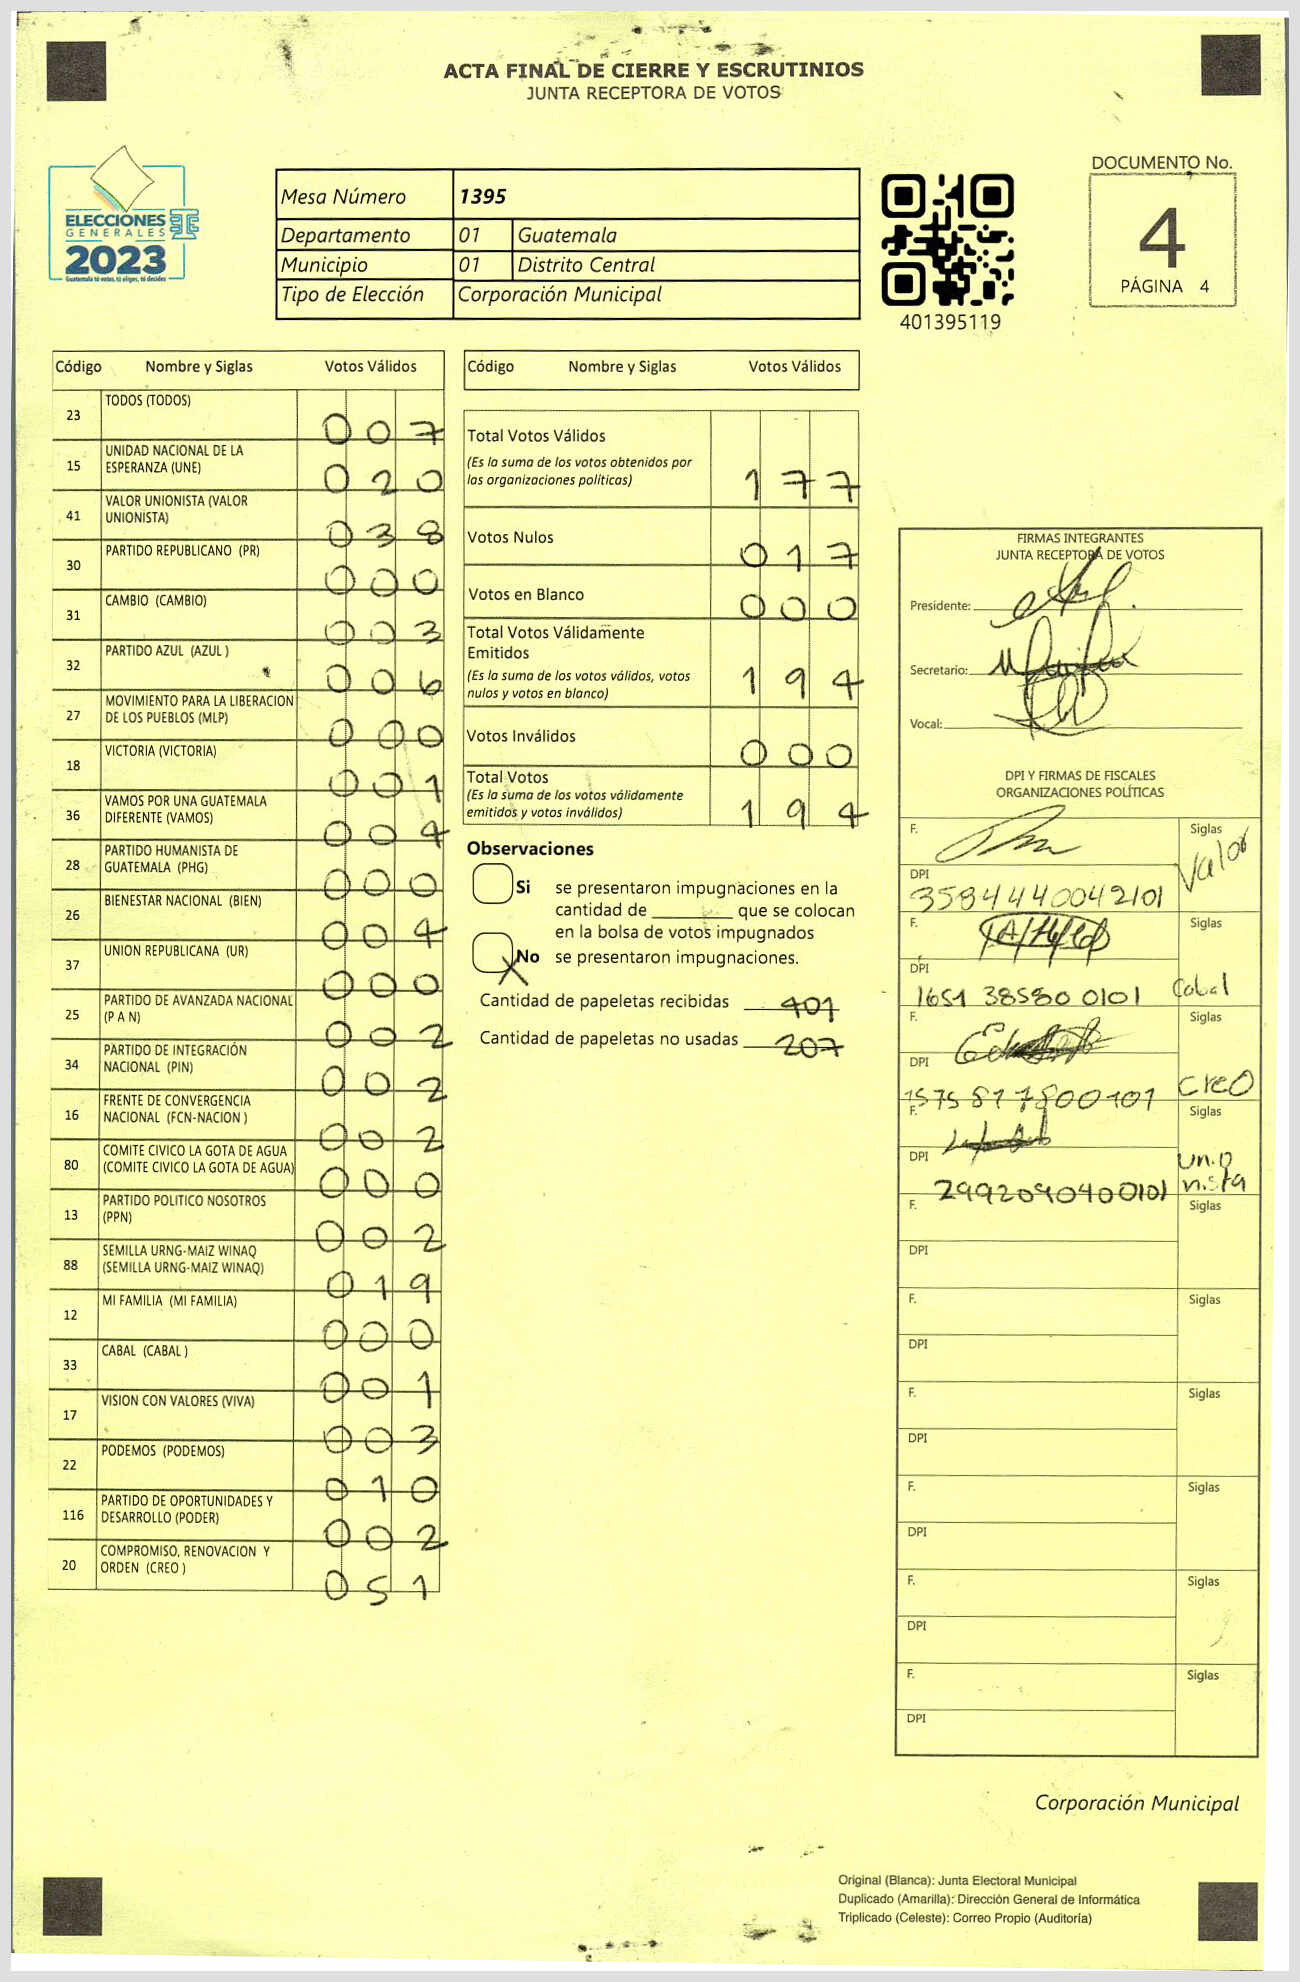 ACTA FINAL DE CIERRE Y ESCRUTINIOS
JUNTA RECEPTORA DE VOTOS
ELECCIONES
GENERALES
2023
Guatemala tú votas, tú eliges, tú decides
Mesa Número 1395
Departamento 01 Guatemala
Municipio 01 Distrito Central
Tipo de Elección Corporación Municipal
401395119
DOCUMENTO No.
4
PÁGINA 4
Código Nombre y Siglas Votos Válidos
23 TODOS (TODOS) 007
15 UNIDAD NACIONAL DE LA
ESPERANZA (UNE) 020
41 VALOR UNIONISTA (VALOR
UNIONISTA) 038
30 PARTIDO REPUBLICANO (PR) 000
31 CAMBIO (CAMBIO) 003
32 PARTIDO AZUL (AZUL ) 006
27 MOVIMIENTO PARA LA LIBERACION
DE LOS PUEBLOS (MLP) 000
18 VICTORIA (VICTORIA) 001
36 VAMOS POR UNA GUATEMALA
DIFERENTE (VAMOS) 004
28 PARTIDO HUMANISTA DE
GUATEMALA (PHG) 000
26 BIENESTAR NACIONAL (BIEN) 004
37 UNION REPUBLICANA (UR) 000
25 PARTIDO DE AVANZADA NACIONAL
(P A N) 002
34 PARTIDO DE INTEGRACIÓN
NACIONAL (PIN) 002
16 FRENTE DE CONVERGENCIA
NACIONAL (FCN-NACION ) 002
80 COMITE CIVICO LA GOTA DE AGUA
(COMITE CIVICO LA GOTA DE AGUA) 000
13 PARTIDO POLITICO NOSOTROS
(PPN) 002
88 SEMILLA URNG-MAIZ WINAQ
(SEMILLA URNG-MAIZ WINAQ) 019
12 MI FAMILIA (MI FAMILIA) 000
33 CABAL (CABAL ) 001
17 VISION CON VALORES (VIVA) 003
22 PODEMOS (PODEMOS) 010
116 PARTIDO DE OPORTUNIDADES Y
DESARROLLO (PODER) 002
20 COMPROMISO, RENOVACION Y
ORDEN (CREO ) 051
Código Nombre y Siglas Votos Válidos
Total Votos Válidos
(Es la suma de los votos obtenidos por
las organizaciones políticas) 177
Votos Nulos 017
Votos en Blanco 000
Total Votos Válidamente
Emitidos
(Es la suma de los votos válidos, votos
nulos y votos en blanco) 194
Votos Inválidos 000
Total Votos
(Es la suma de los votos válidamente
emitidos y votos inválidos) 194
Observaciones
Si se presentaron impugnaciones en la
cantidad de ________ que se colocan
en la bolsa de votos impugnados
X No se presentaron impugnaciones.
Cantidad de papeletas recibidas 401
Cantidad de papeletas no usadas 207
FIRMAS INTEGRANTES
JUNTA RECEPTORA DE VOTOS
Presidente:
Secretario:
Vocal:
DPI Y FIRMAS DE FISCALES
ORGANIZACIONES POLÍTICAS
F. Siglas
Valor
DPI
3584440042101
F. Siglas
DPI
1651 38580 0101 Cabal
F. Siglas
DPI
1575817800101 CREO
F. Siglas
DPI Unio
2992090400101 nista
F. Siglas
DPI
F. Siglas
DPI
F. Siglas
DPI
F. Siglas
DPI
F. Siglas
DPI
F. Siglas
DPI
Corporación Municipal
Original (Blanca): Junta Electoral Municipal
Duplicado (Amarilla): Dirección General de Informática
Triplicado (Celeste): Correo Propio (Auditoría)